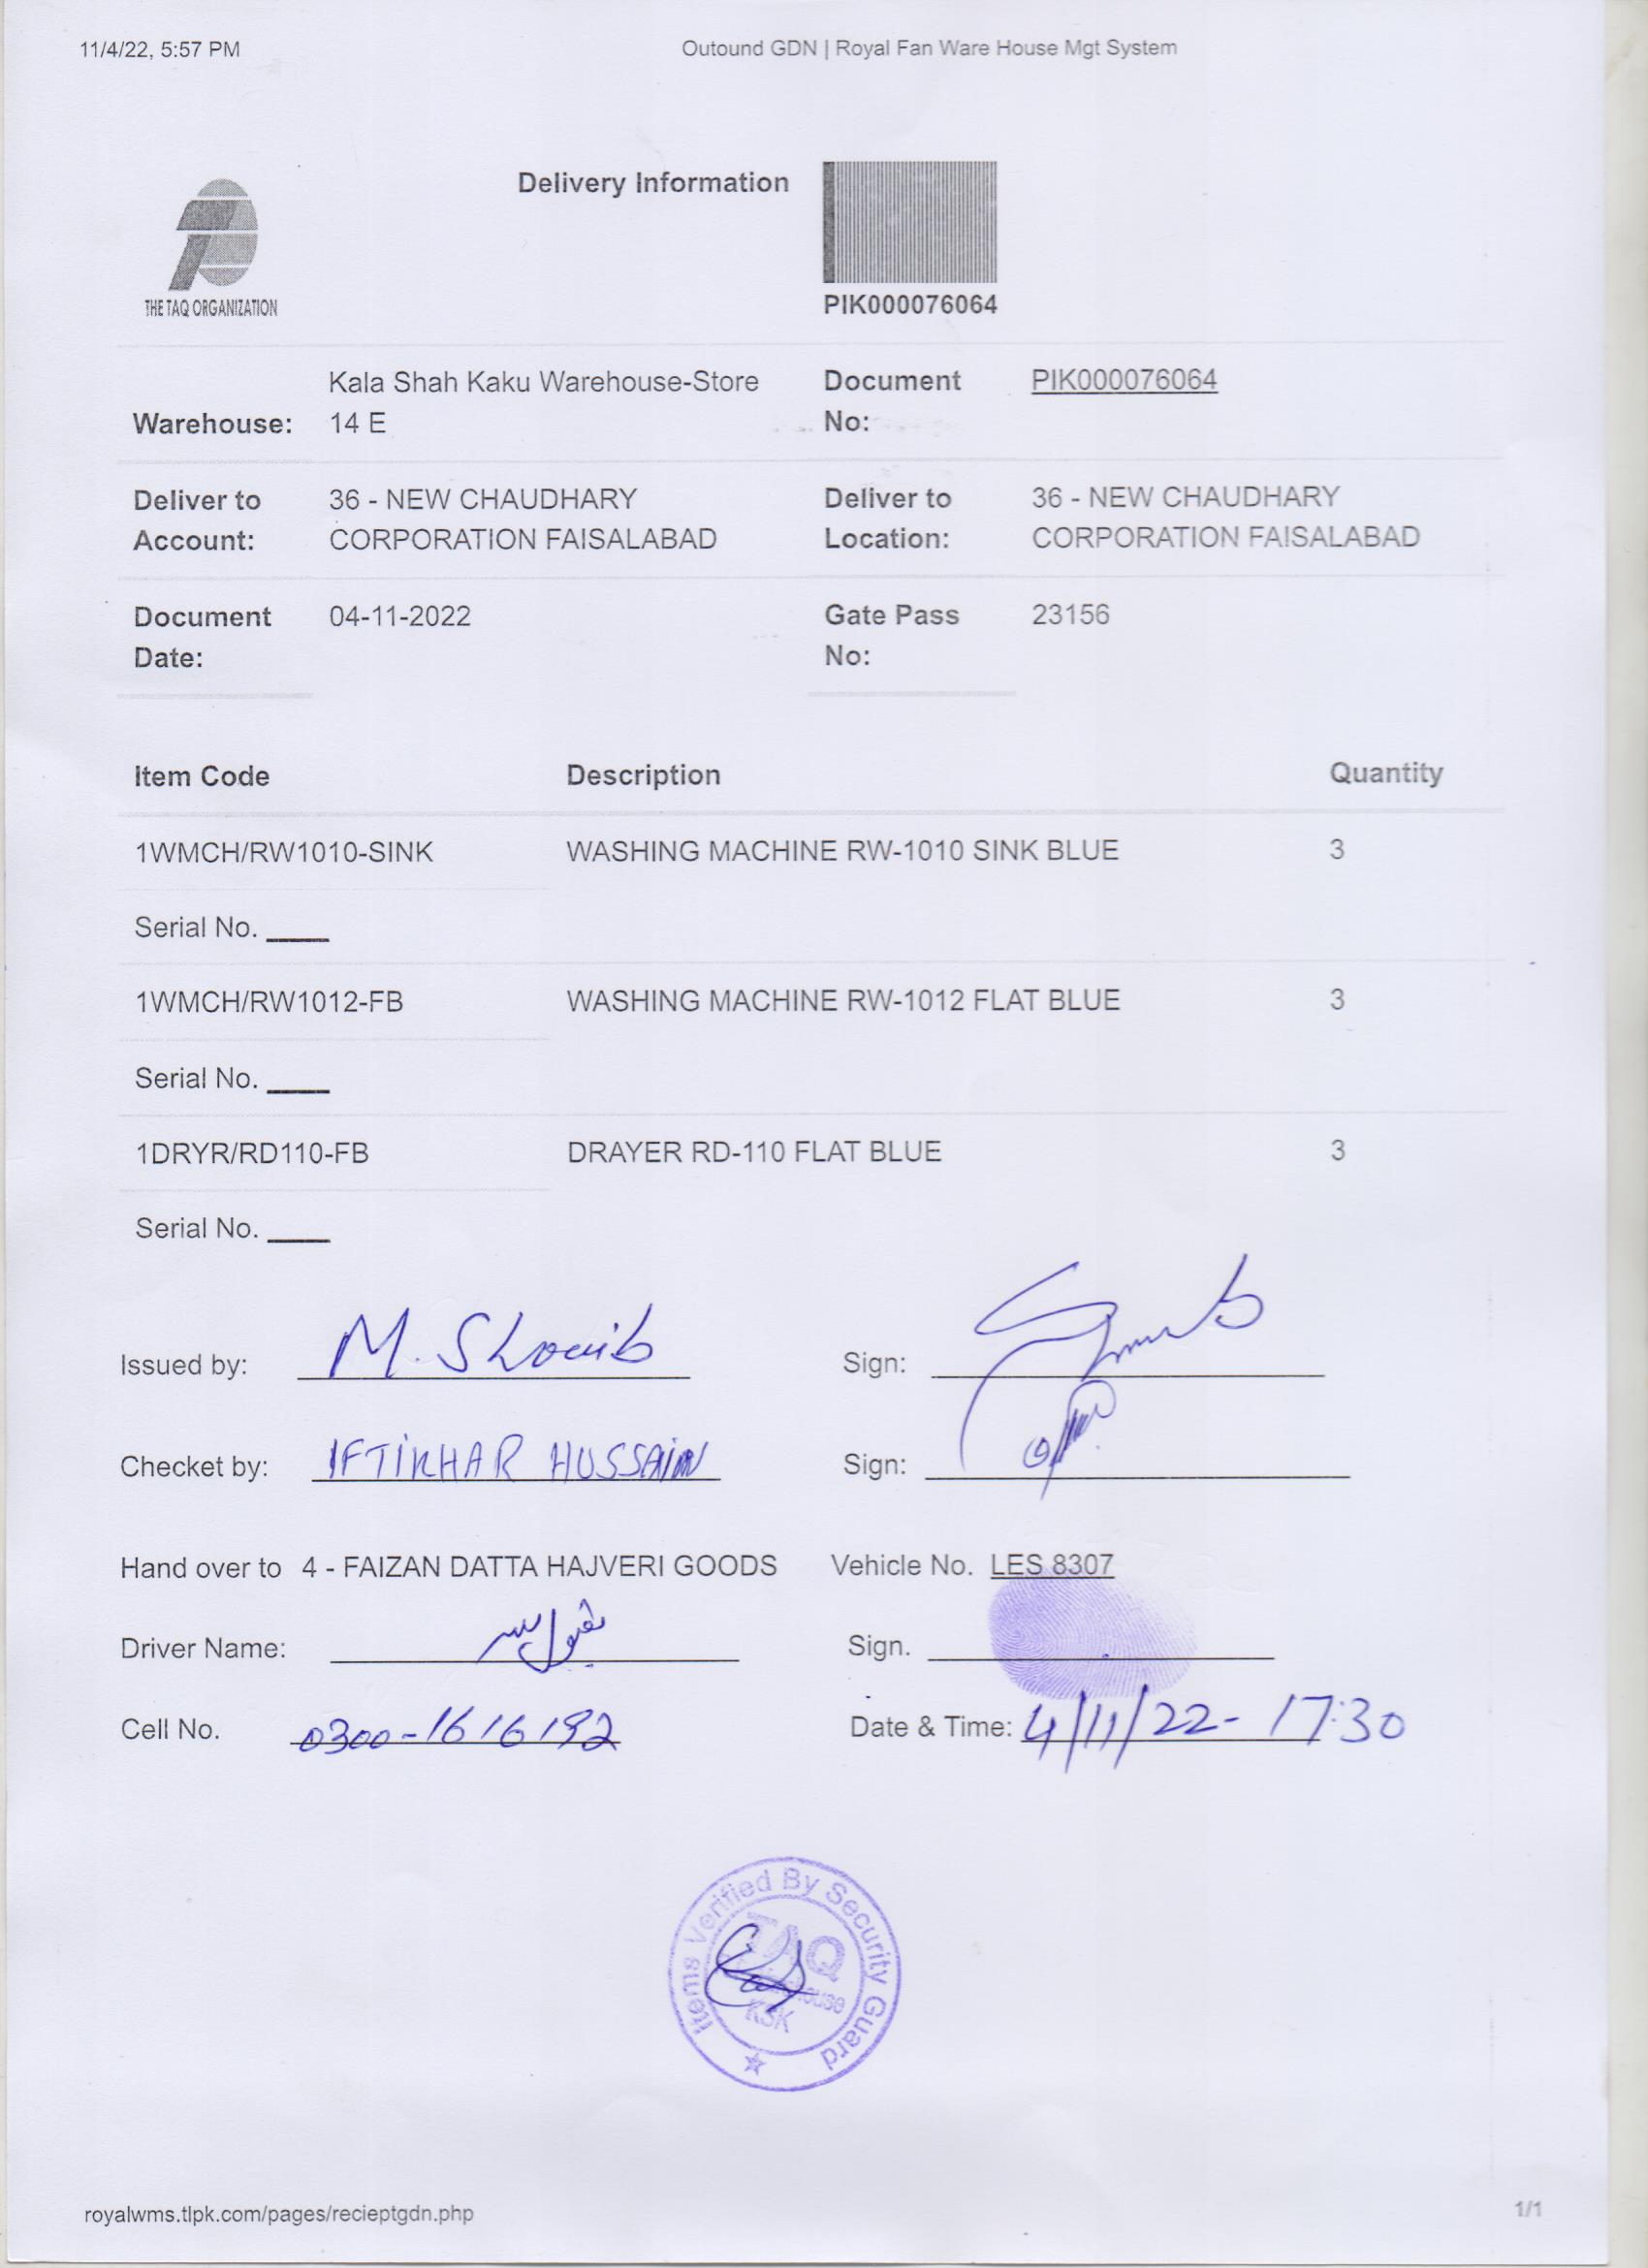 11/4/22, 5:57 PM
Outound GDN | Royal Fan Ware House Mgt System
THE TAQ ORGANIZATION
Delivery Information
PIK000076064
Warehouse: Kala Shah Kaku Warehouse-Store 14 E
Document No: PIK000076064
Deliver to Account: 36 - NEW CHAUDHARY CORPORATION FAISALABAD
Deliver to Location: 36 - NEW CHAUDHARY CORPORATION FAISALABAD
Document Date: 04-11-2022
Gate Pass No: 23156
Item Code Description Quantity
1WMCH/RW1010-SINK WASHING MACHINE RW-1010 SINK BLUE 3
Serial No. ____
1WMCH/RW1012-FB WASHING MACHINE RW-1012 FLAT BLUE 3
Serial No. ____
1DRYR/RD110-FB DRAYER RD-110 FLAT BLUE 3
Serial No. ____
Issued by: M. Shouib Sign:
Checket by: IFTIKHAR HUSSAIN Sign:
Hand over to 4 - FAIZAN DATTA HAJVERI GOODS Vehicle No. LES 8307
Driver Name: Sign.
Cell No. 0300-1616192 Date & Time: 4/11/22- 17:30
Items Verified By Security Guard
TAQ
KSK
royalwms.tlpk.com/pages/recieptgdn.php
1/1